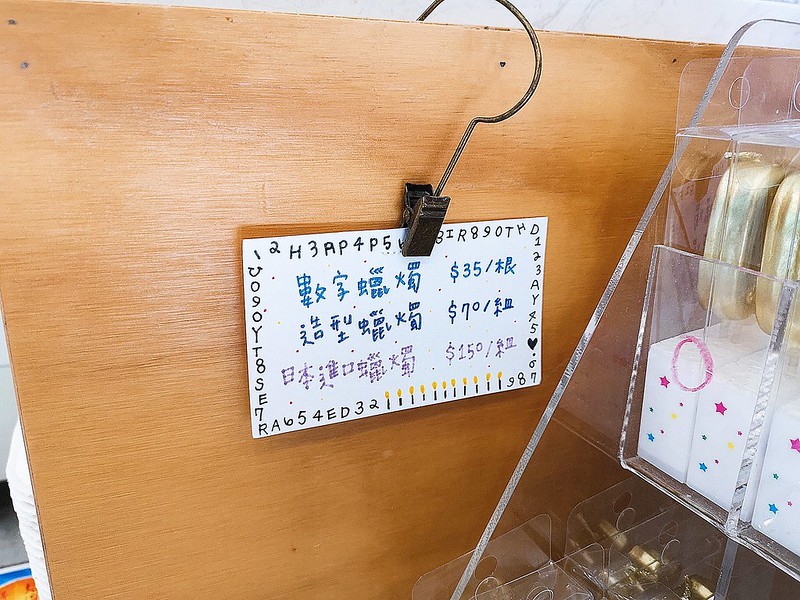 12H3AP4P5
BIR890TH
D123AY45♥·67
數字蠟燭 $35/根
造型蠟燭 $70/組
日本進口蠟燭 $150/組
RA654ED32
987